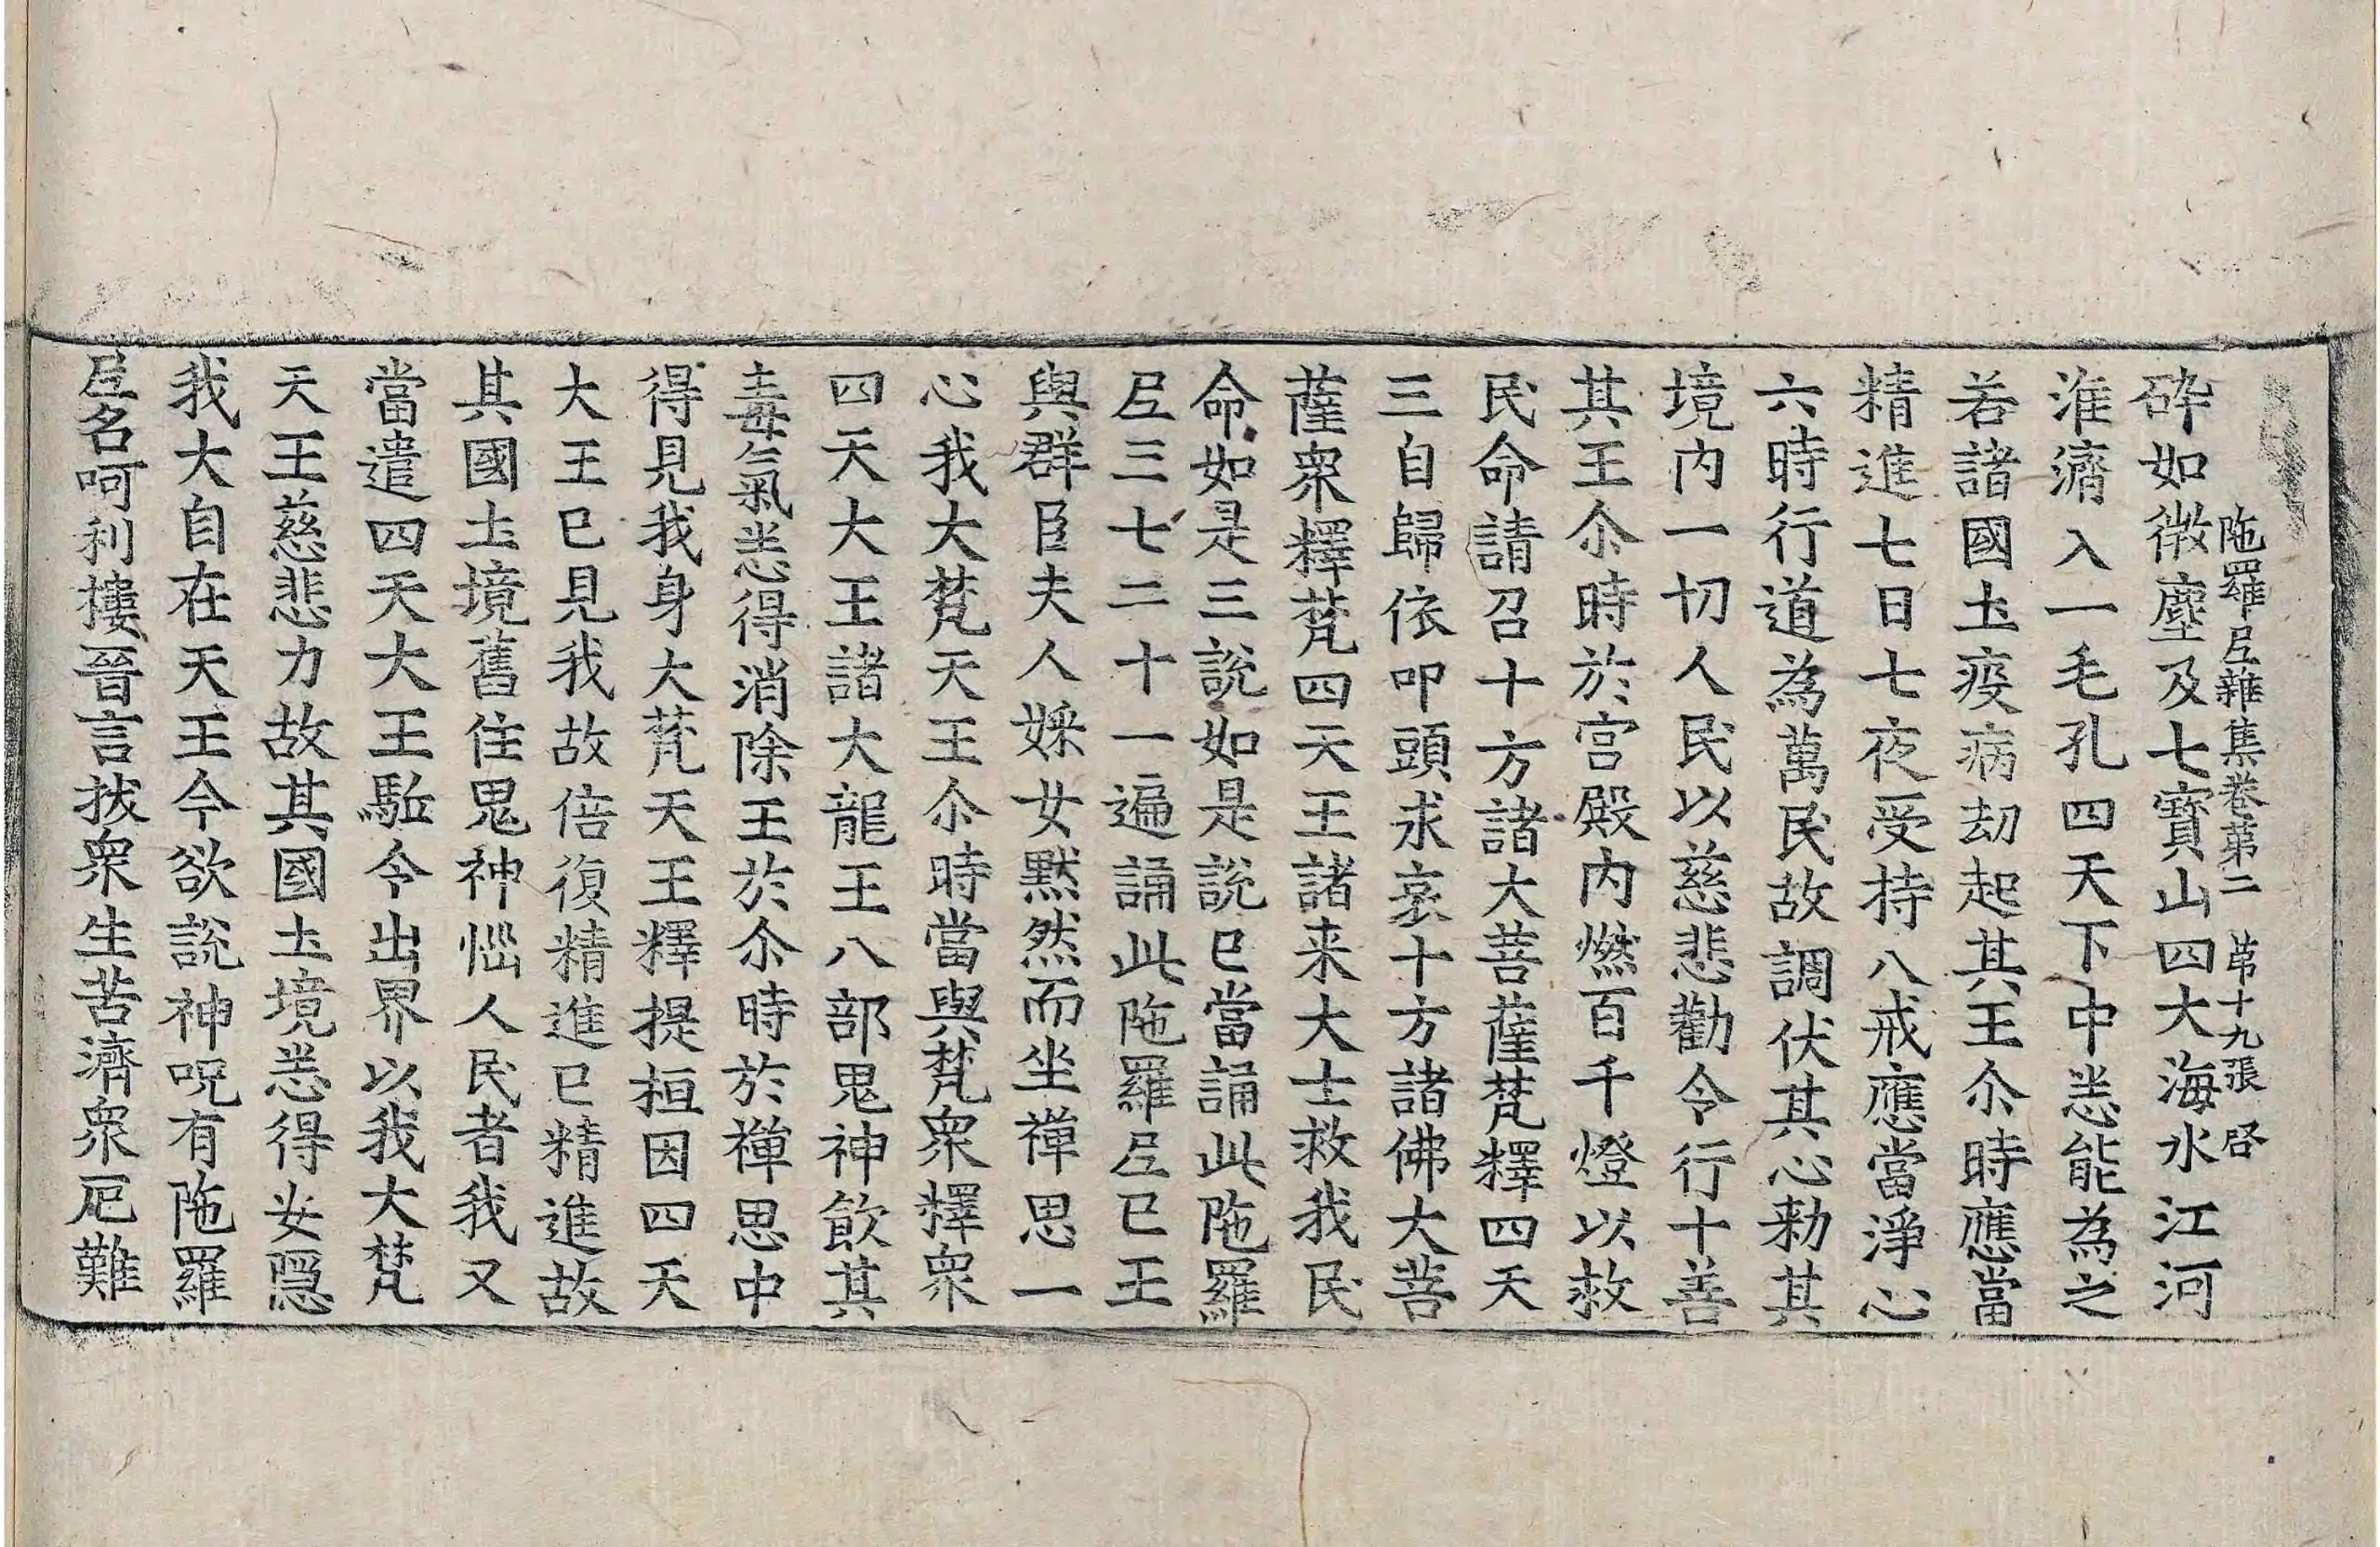 陁羅𡰱雜集卷第二　苐十九張　啓
碎如微塵及七寶山四大海水江河
淮濟入一毛孔四天下中恙能為之
若諸國圡疫病刧起其王尒時應當
精進七日七夜受持八戒應當淨心
六時行道為萬民故調伏其心勑其
境內一切人民以慈悲勸令行十善
其王尒時於宫殿內燃百千燈以救
民命請召十方諸大菩薩梵釋四天
三自歸依叩頭求哀十方諸佛大菩
薩衆釋梵四天王諸来大士救我民
命如是三說如是說已當誦此陁羅
𡰱三七二十一遍誦此陁羅𡰱已王
與群臣夫人婇女黙然而坐禪思一
心我大梵天王尒時當與梵衆釋衆
四天大王諸大龍王八部鬼神飲其
毒氣恙得消除王於尒時於禪思中
得見我身大梵天王釋提桓因四天
大王已見我故倍復精進已精進故
其國圡境舊住鬼神惱人民者我又
當遣四天大王駈令出界以我大梵
天王慈悲力故其國圡境恙得安隱
我大自在天王今欲說神呪有陁羅
𡰱名呵利摟晉言拔衆生苦濟衆厄難